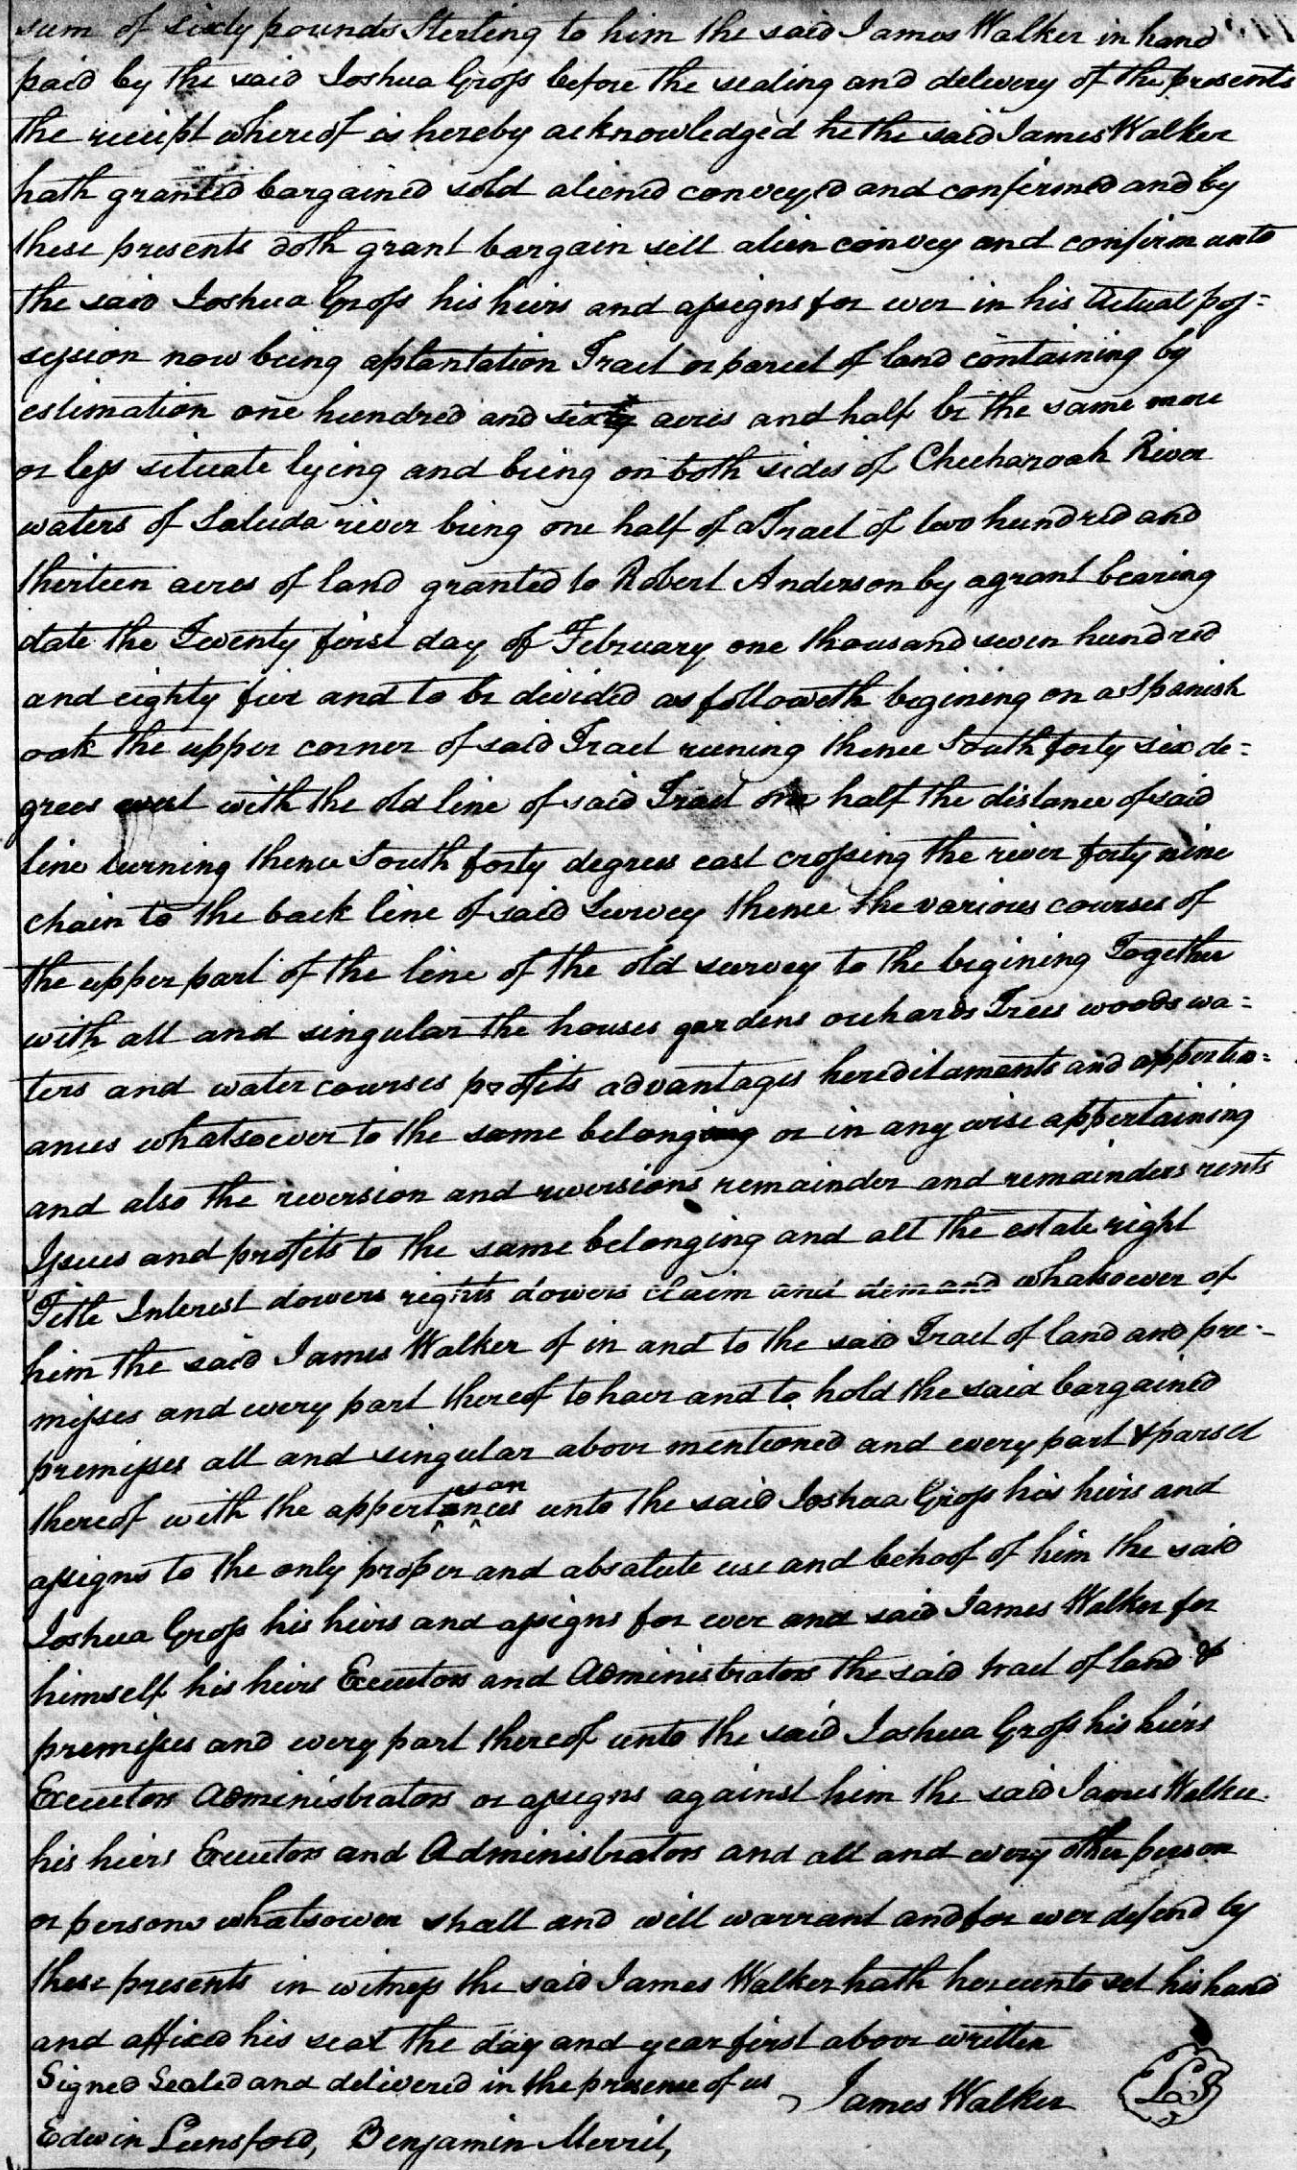 sum of sixty pounds Sterling to him the said James Walker in hand
paid by the said Joshua Gross before the sealing and delivery of the presents
the receipt whereof is hereby acknowledged he the said James Walker
hath granted bargained sold aliened conveyed and confirmed and by
these presents doth grant bargain sell alien convey and confirm unto
the said Joshua Gross his heirs and assigns for ever in his actual pos=
session now being a plantation Tract or parcel of land containing by
estimation one hundred and sixty acres and half be the same more
or less situate lying and being on both sides of Cheeharoah River
waters of Saluda river being one half of a Tract of two hundred and
thirteen acres of land granted to Robert Anderson by a grant bearing
date the Twenty first day of February one thousand seven hundred
and eighty five and to be divided as followeth begining on a Spanish
oak the upper corner of said Tract runing thence South forty six de=
grees west with the old line of said Tract one half the distance of said
line turning thence South forty degrees east crossing the river forty nine
chain to the back line of said Survey thence the various courses of
the upper part of the line of the old survey to the begining Together
with all and singular the houses gardens orchards Trees woods wa=
ters and water courses profits advantages hereditaments and appertin=
ances whatsoever to the same belonging or in any wise appertaining
and also the reversion and reversions remainder and remainders rents
Issues and profits to the same belonging and all the estate right
Title Interest dowers rights dowers claim and demand whatsoever of
him the said James Walker of in and to the said Tract of land and pre=
misses and every part thereof to have and to hold the said bargained
premisses all and singular above mentioned and every part & parsel
thereof with the appertanences unto the said Joshua Gross his heirs and
assigns to the only proper and absolute use and behoof of him the said
Joshua Gross his heirs and assigns for ever and said James Walker for
himself his heirs Executors and Administrators the said tract of land &
premisses and every part thereof unto the said Joshua Gross his heirs
Executors Administrators or assigns against him the said James Walker
his heirs Executors and Administrators and all and every other person
or persons whatsoever shall and will warrant and for ever defend by
these presents in witness the said James Walker hath hereunto set his hand
and affixed his seal the day and year first above written
Signed Sealed and delivered in the presence of us James Walker LS
Edwin Lunsford, Benjamin Merril,